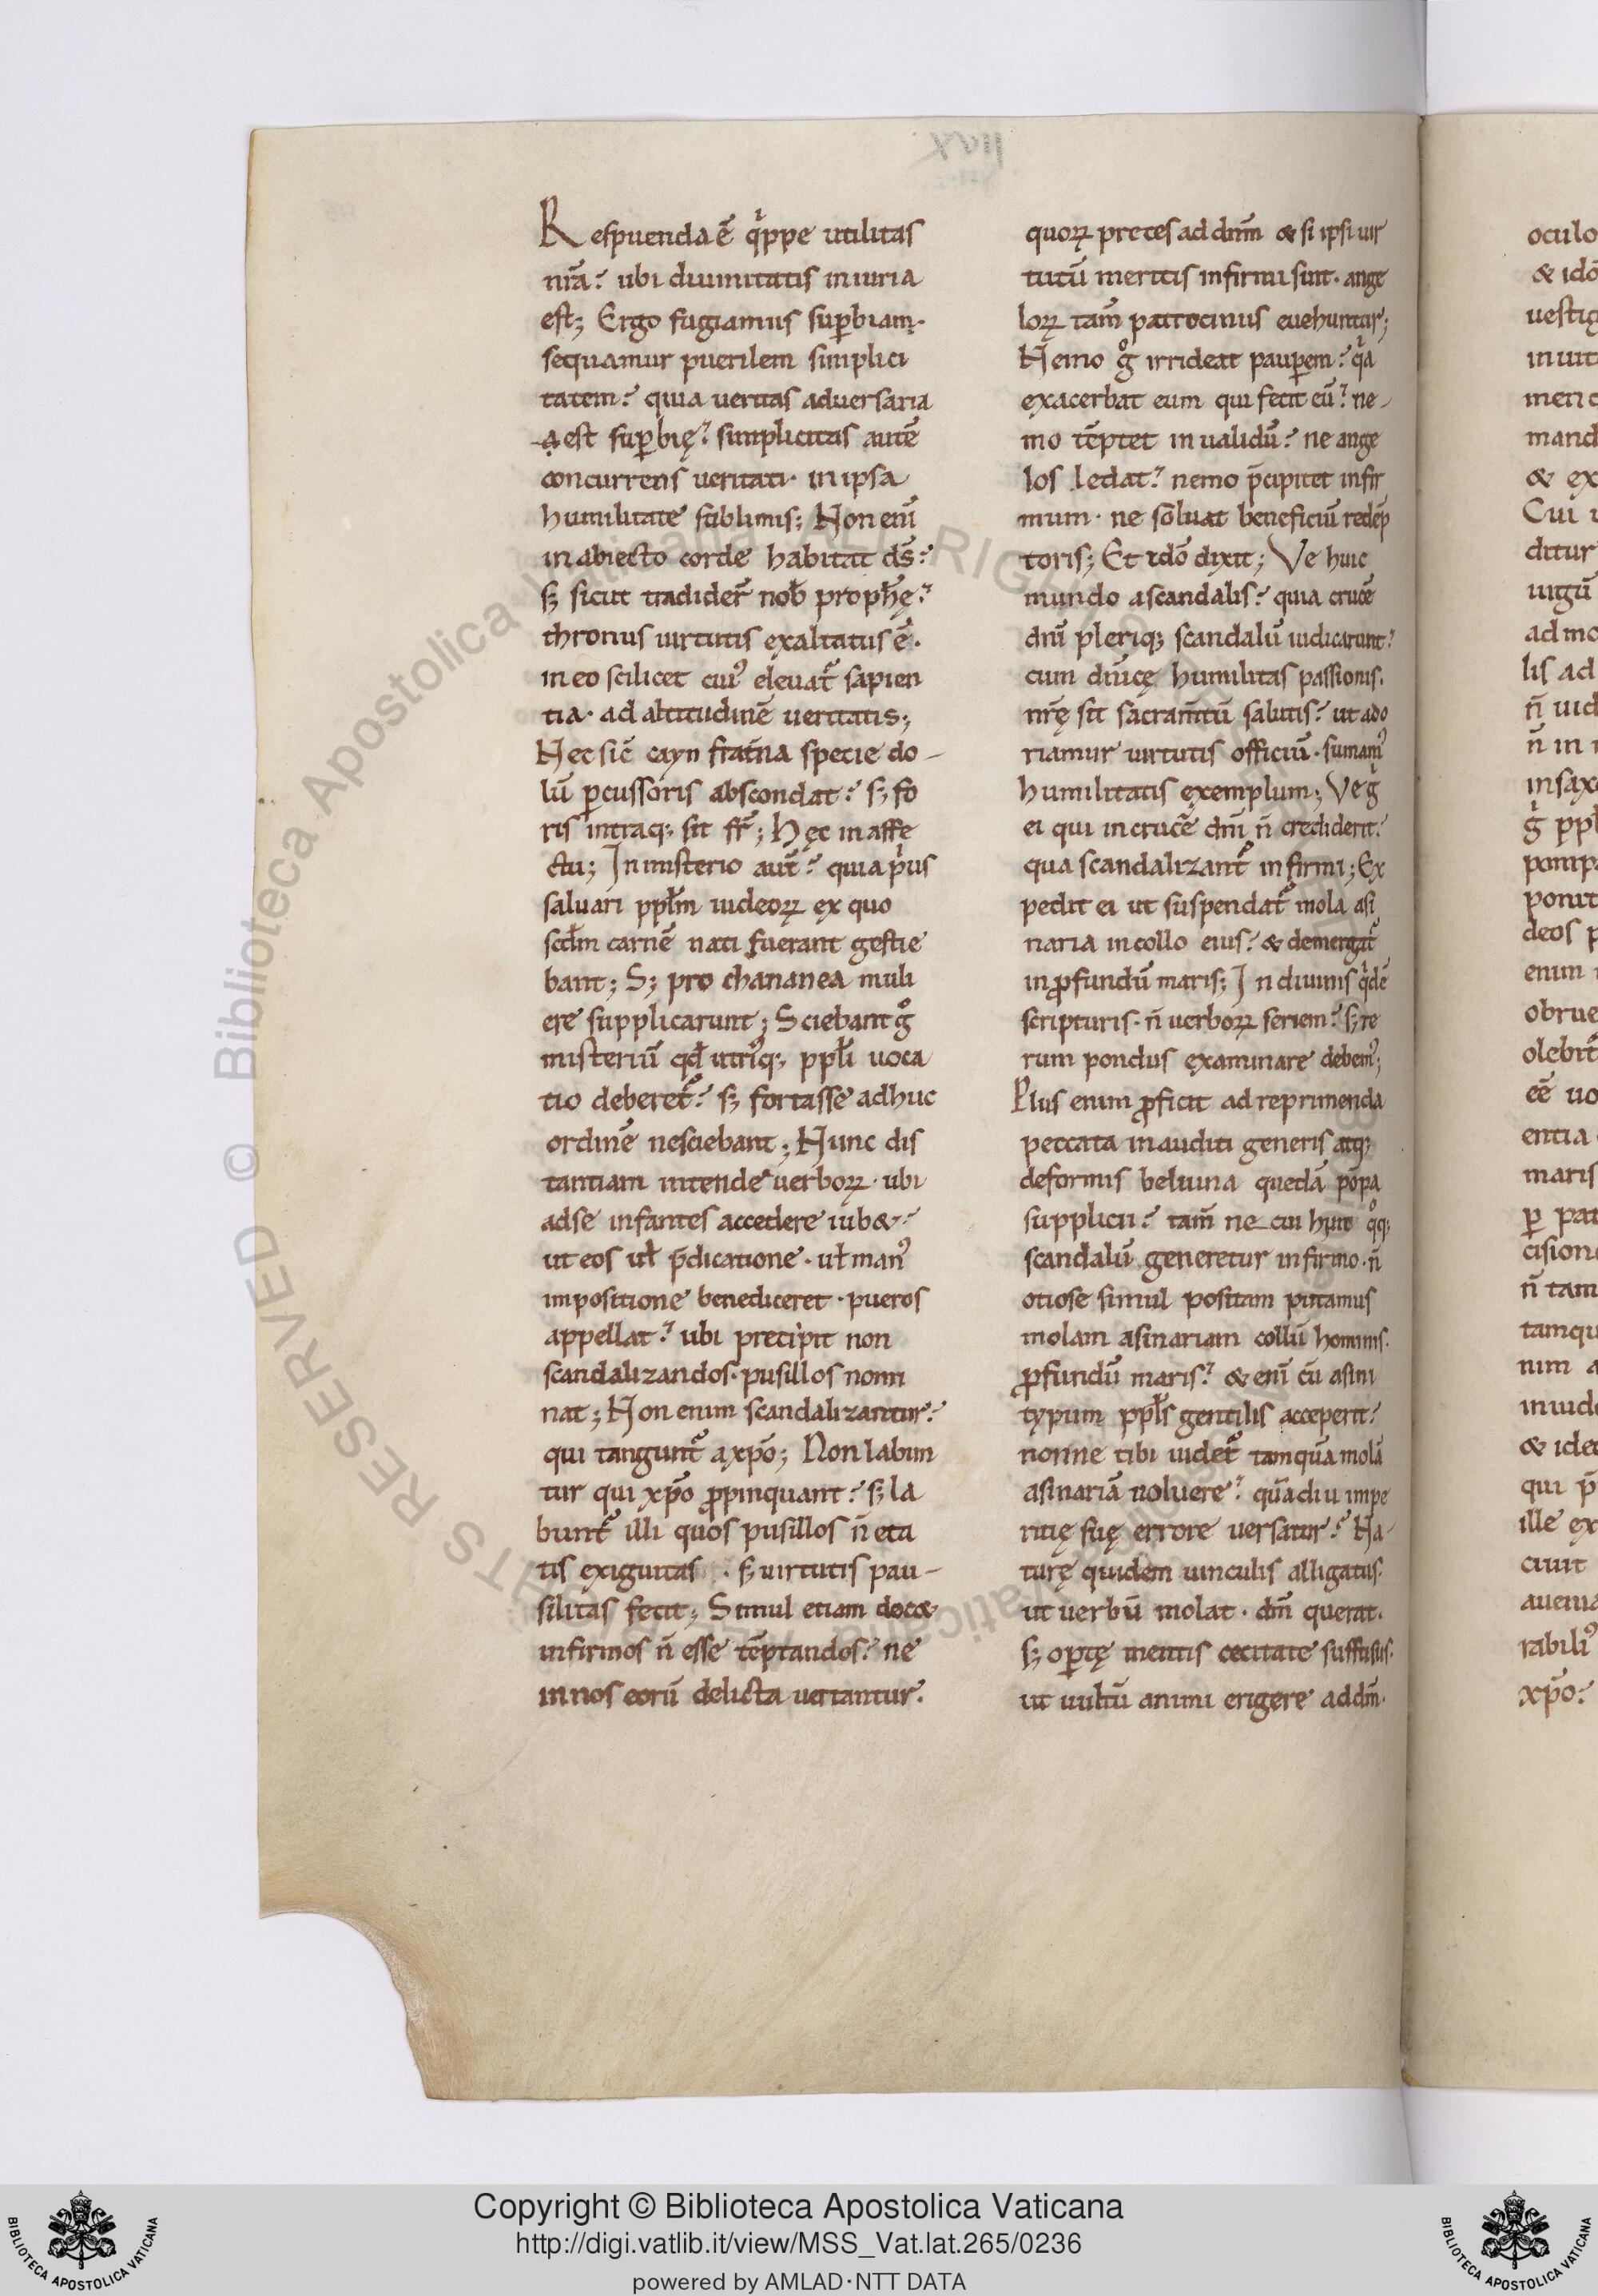 Respuenda ē q̓ppe utilitas
nr̄a? ubi diuinitatis iniuria
est; Ergo fugiamus suꝑbiam·
sequamur puerilem simplici
tatem? quia ueritas aduersaria
est suꝑbię? simplicitas autē
concurrens ueritati· in ipsa
humilitate sublimis; Non eni̅
in abiecto corde habitat ds̄?
sꝫ sicut tradider̄ nob̄ prophę?
thronus uirtutis exaltatus ē·
in eo scilicet cui᾽ eleuat᷑ sapien
tia· ad altitudinē ueritatis;
Nec sic̄ cayn frat̄na specie do-
lū ꝑcussoris abscondat? sꝫ fo
ris intraqꝫ sit fr̄; Hęc in affe
ctu; In misterio aut̄? quia p̓us
saluari ppl̄m iudeoꝝ ex quo
scd̄m carnē nati fuerant gestie
bant; Sꝫ pro chananea muli
ere supplicarunt; Sciebant gͦ
misteriū qd̄ utriꝰqꝫ ppl̄i uoca
tio deberet᷑? sꝫ fortasse adhuc
ordinē nesciebant; Hunc dis
tantiam intende uerboꝝ· ubi
ad se infantes accedere iub&?
ut eos ul̄ p̄dicatione· ul̄ manꝰ
impositione benediceret· pueros
appellat? ubi precipit non
scandalizandos· pusillos nomi
nat; Non enim scandalizantur?
qui tangunt᷑ a xp̄o; Non labun
tur qui xp̄o ꝓpinquant? sꝫ la
bunt᷑ illi quos pusillos n̄ eta
tis exiguitas · sꝫ uirtutis pau-
silitas fecit; Simul etiam doc&
infirmos n̄ esse tēptandos? ne
in nos eorū delicta uertantur?
quoꝝ preces ad dnm̄ & si ipsi uir
tutū meritis infirmi sunt· ange
loꝝ tam̄ patrociniis euehuntur;
Nemo gͦ irrideat pauꝑem? q̓a
exacerbat eum qui fecit eū? ne-
mo tēptet inualidū? ne ange
los ledat? nemo p̄cipitet infir
mum· ne soluat beneficiū redēp
toris; Et idō dixit; Ve huic
mundo a scandalis? quia crucē
dnī pleriqꝫ scandalū iudicarunt?
cum diuicę humilitas passionis·
nr̄ę sit sacram̄tū salutis? ut ado
riamur uirtutis officiū· sumamꝰ
humilitatis exemplum; Ve g̓
ei qui in crucē dnī n̄ crediderit?
qua scandalizant᷑ infirmi; Ex
pedit ei ut suspendat᷑ mola asi
naria in collo eius? & demergat᷑
in ꝓfundū maris; In diuinis q̓dē
scripturis· n̄ uerboꝝ seriem? sꝫ re
rum pondus examinare debemꝰ;
Plus enim ꝓficit ad reprimenda
peccata inauditi generis atqꝫ
deformis beluina quedā pōpa
supplicii? tam̄ ne cui hinc qͦqꝫ
scandalū generetur infirmo· n̄
otiose simul positam putamus
molam asinariam collū hominis·
ꝓfundū maris? & eni̅ cū asini
typum ppl̄s gentilis acceperit?
nonne tibi uidet᷑ tamquā molā
asinariā uoluere? quādiu impe
ritię suę errore uersatur? Na-
turę quidem uinculis alligatus·
ut uerbū molat· dm̄ querat·
sꝫ oꝑtę mentis cecitate suffusus·
ut uultū animi erigere ad dm̄·
oculo
& idō
uestig
ponit
deos p
enim
obrue
entia
maris
ꝑ pat
cision
n̄ tam
tamqu
nim a
inuid
& ideo
qui p̄
ille ex
rabiliꝰ
xp̄o?
© Biblioteca Apostolica Vaticana ALL RIGHTS RESERVED
Copyright © Biblioteca Apostolica Vaticana
http://digi.vatlib.it/view/MSS_Vat.lat.265/0236
powered by AMLAD·NTT DATA
BIBLIOTECA APOSTOLICA VATICANA
BIBLIOTECA APOSTOLICA VATICANA